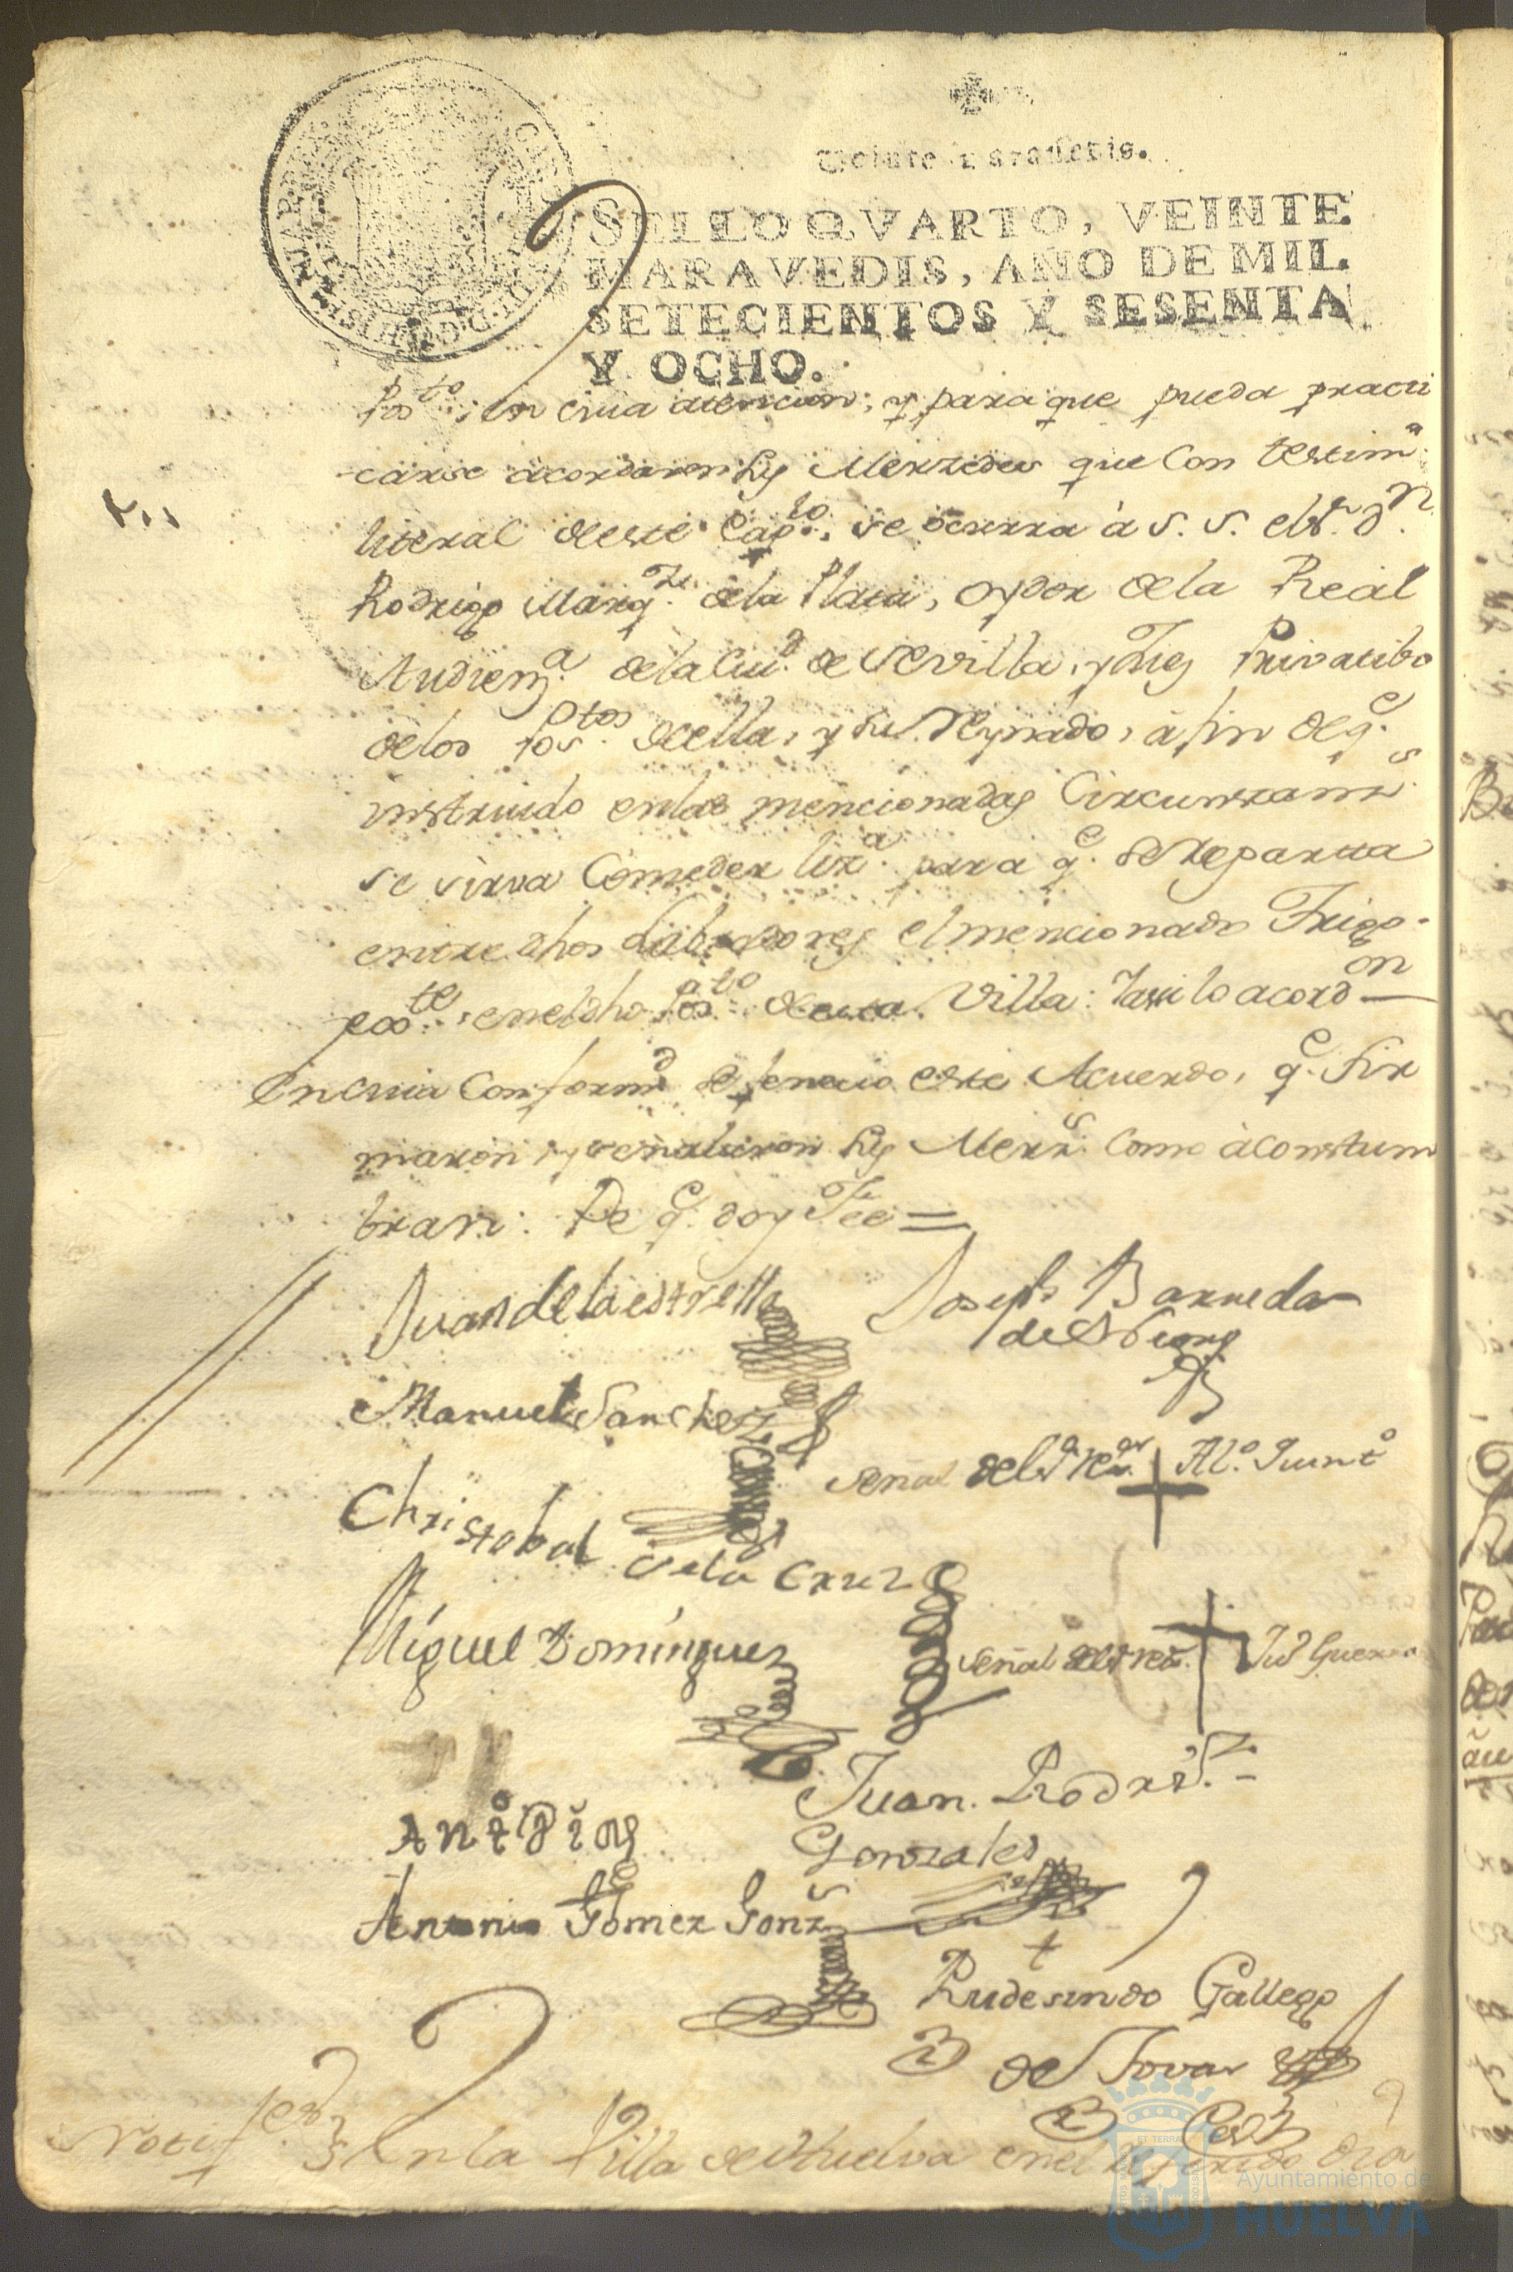 Veinte maravedis.
SELLO QVARTO, VEINTE
MARAVEDIS, AÑO DE MIL
SETECIENTOS Y SESENTA
Y OCHO.
Posto; en cuia atencion; y para que pueda practi
carse acordaron sus Merzedes que Con testimo
literal de este Capto. se ocurra à S. S. el Sr. Dn.
Rodrigo Marqz. de la Plata, oydor de la Real
Audiena. de la Ciud. de Sevilla, y Juez Privatibo
de los Postos. de ella, y su Reynado, à fin de qe.
instruido en las mencionadas Circunstans.
se sirva Comceder liza. para qe. se Reparta
entre dhos Labradores el mencionado Trigo
exste. en el dho Posto. de esta Villa: Y assi lo acordon
En cuia Conformd. se fenecio este Acuerdo, qe. fir
maron, y señalaron sus Merzs. Como àcostum
bran: De qe. doy Fee =
Juan de la estrella
Joseph Barreda
Manuel Sanchez
señal del Sr. Rexdor + Alo. Quinto
Christobal de la Cruz
Miguel Dominguez
señal del Sr. Rexr. + Jua Guerra
Juan Rodrigz.
Anto Dias
Gonzales
Antonio Gomez Gonzs
Rudesindo Gallego
de Tovar
Notif En la Villa de Huelva en el Referido dia
ET TERRA
Ayuntamiento de
HUELVA